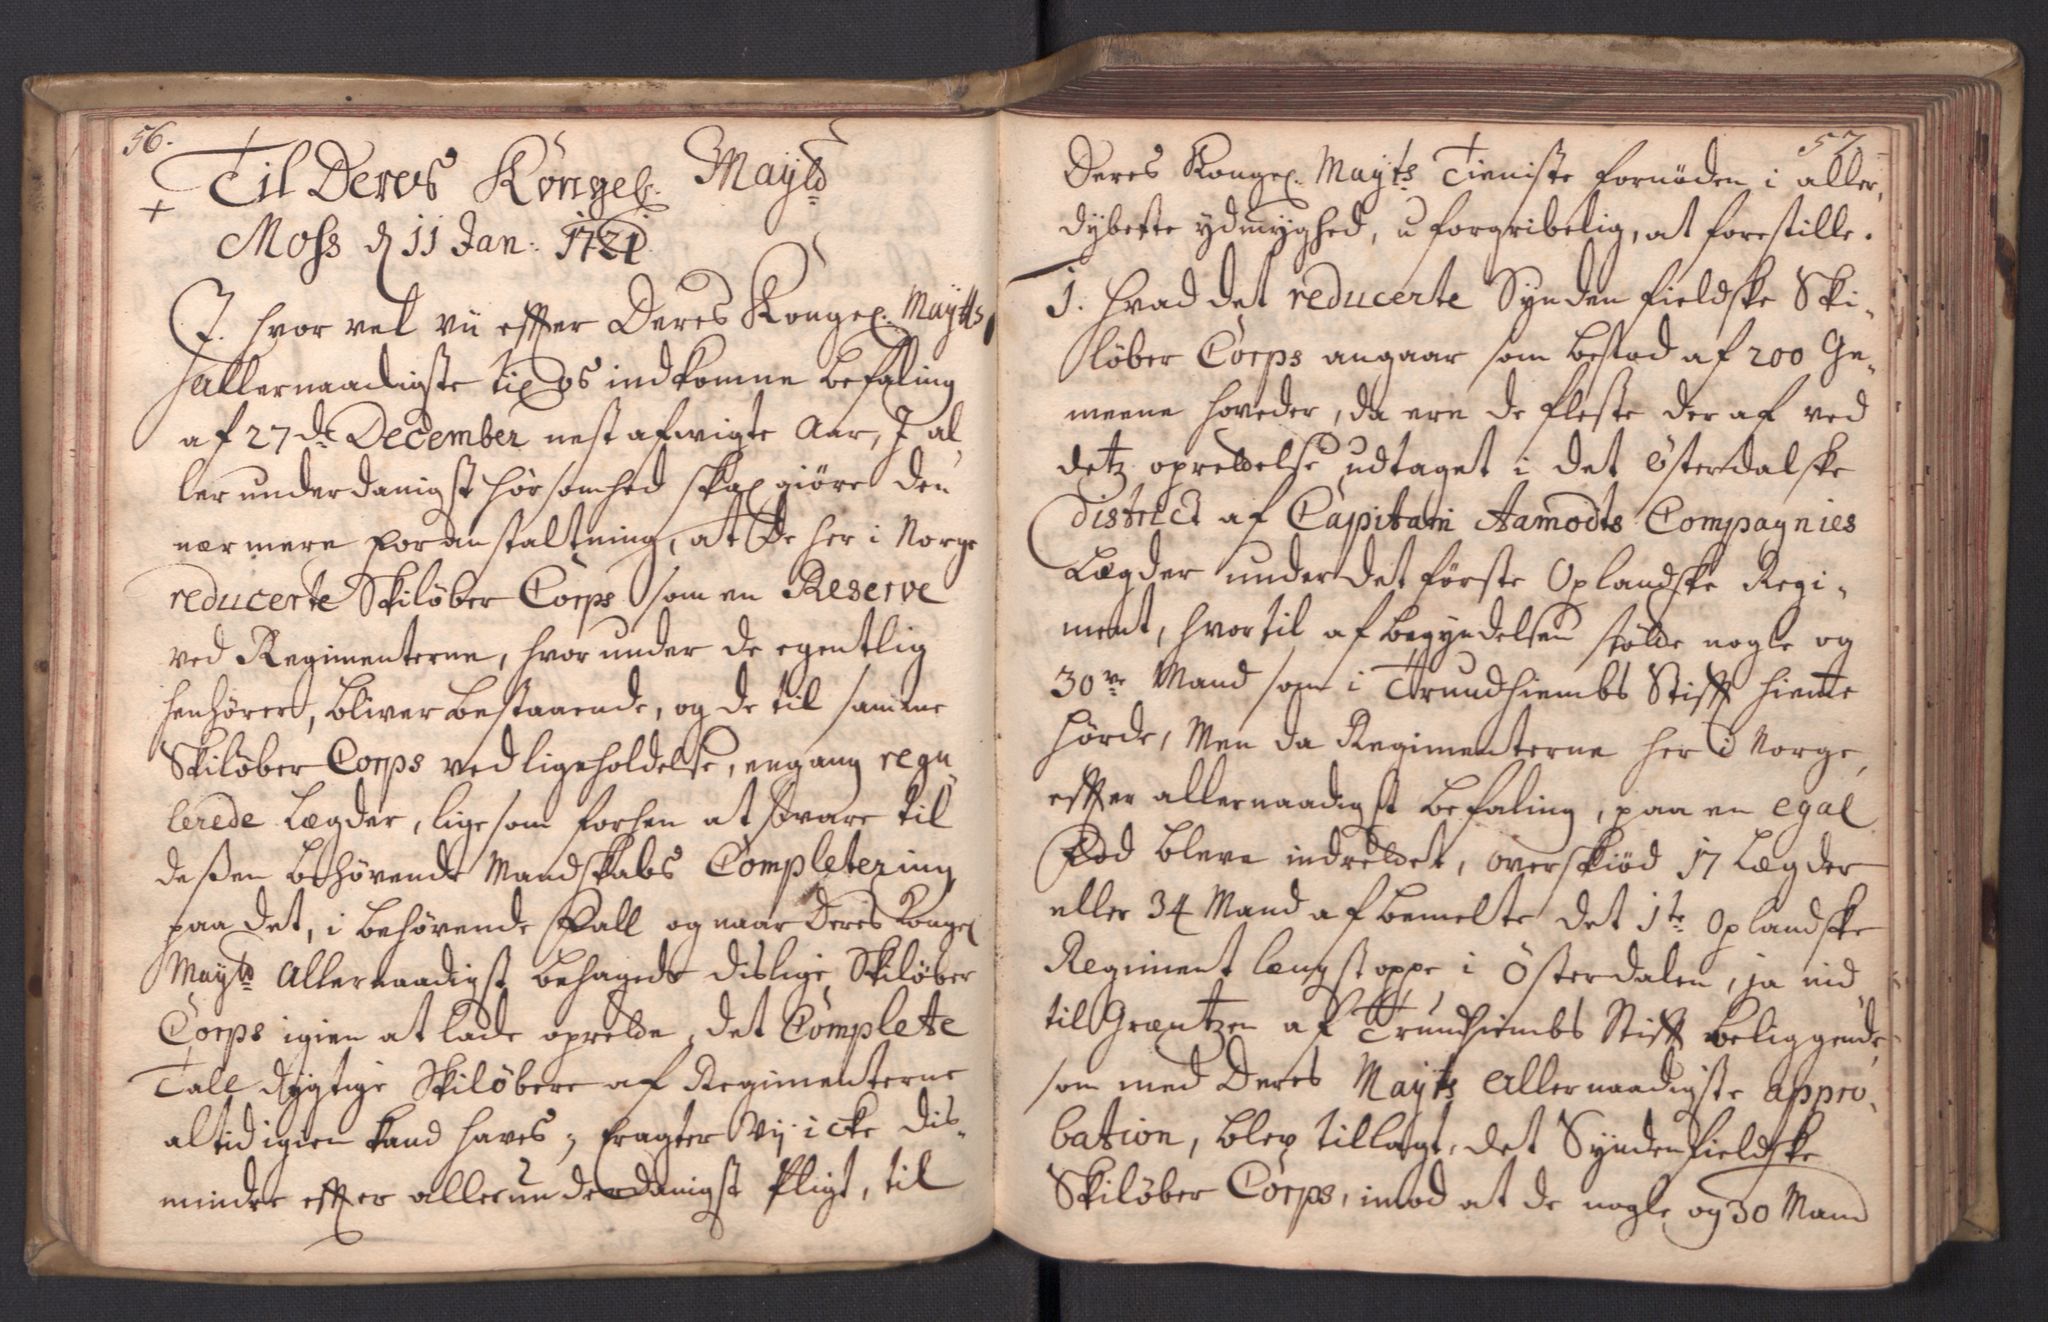 56.
Til Deres Kongel. Mayt
Moss d 11 Jan: 1721
I. hvor vel vii effter Deres Kongel. Maytts
allernaadigste til os indkomne befaling
af 27de December nest afwigte Aar, I al,
ler underdanigst hörsomhed skal giöre den
nærmere foranstaltning, at De her i Norge
reducerte Skilöber Corps som en Reserve
ved Regimenterne, hvor under de egentlig
henhörer, bliver bestaaende, og de til samme
Skilöber Corps vedligeholdelse, engang regu
lerede Lægder, lige som forhen at svare til
deßen behövende Mandskabs Completering
paa det, i behövende Fall og naar Deris Kongel
Mayt Allernaadigst behagede dislige Skilöber
Corps igien at lade oprette, det Complete
Tall dygtige Skilöbere af Regimenterne
altid igien kand haves; fragter Vij icke dis-
mindre effter allerunderdanigst Pligt, til
57
Deres Kongel. Mayts Tieniste fornöden i aller,
dybeste ydmyghed, uforgribelig, at forestille.
1. Hvad det reducerte Synden fieldske Ski-
löber Corps angaar som bestod af 200 Ge-
meene hoveder, da ere de fleste der af ved
detz oprettelse udtaget i det Österdalske
district af Capitain Aamodts Compagnies
Lægder under det förste Oplandske Regi-
ment, hvortil af begyndelsen stölde nogle og
30ve Mand som i Trundhiembs Stifft hiemme
hörde, Men da Regimenterne her i Norge,
effter allernaadigst befaling, paa en egal
Fod bleve indrettet, overskiöd 17 Lægder
eller 34 Mand af bemelte det 1te Oplandske
Regiment længst oppe i Österdalen, ja ind
til Græntzen af Trundhiembs Stifft beliggende,
som med Deres Mayts Allernaadigste appro-
bation, blev tillagt, det Syndenfieldske
Skilöber Corps, imod at de nogle og 30 Mand